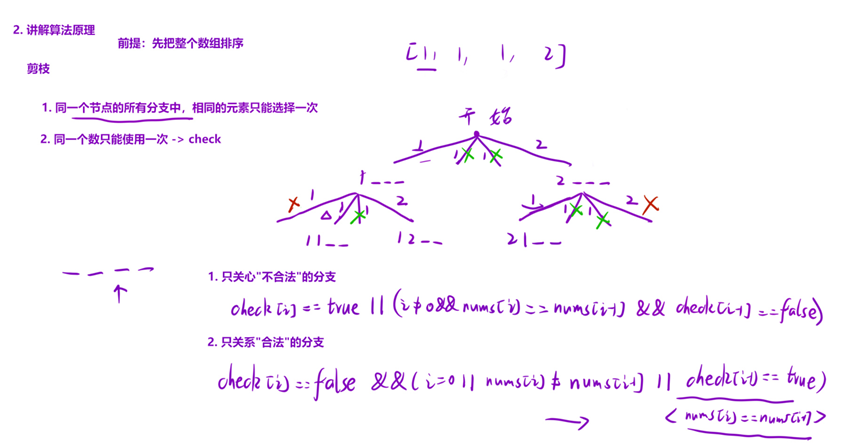 2. 讲解算法原理
前提：先把整个数组排序
[1, 1, 1, 2]
剪枝
1. 同一个节点的所有分支中，相同的元素只能选择一次
开始
2. 同一个数只能使用一次 -> check
1 1 1 2
1 _ _ _ 2 _ _ _
1 1 1 2 1 1 1 2
1 1 _ _ 1 2 _ _ 2 1 _ _
1. 只关心"不合法"的分支
check[i] == true || (i ≠ 0 && nums[i] == nums[i-1] && check[i-1] == false)
2. 只关系"合法"的分支
check[i] == false && (i=0 || nums[i] ≠ nums[i-1] || check[i-1] == true)
< nums[i] == nums[i-1] >